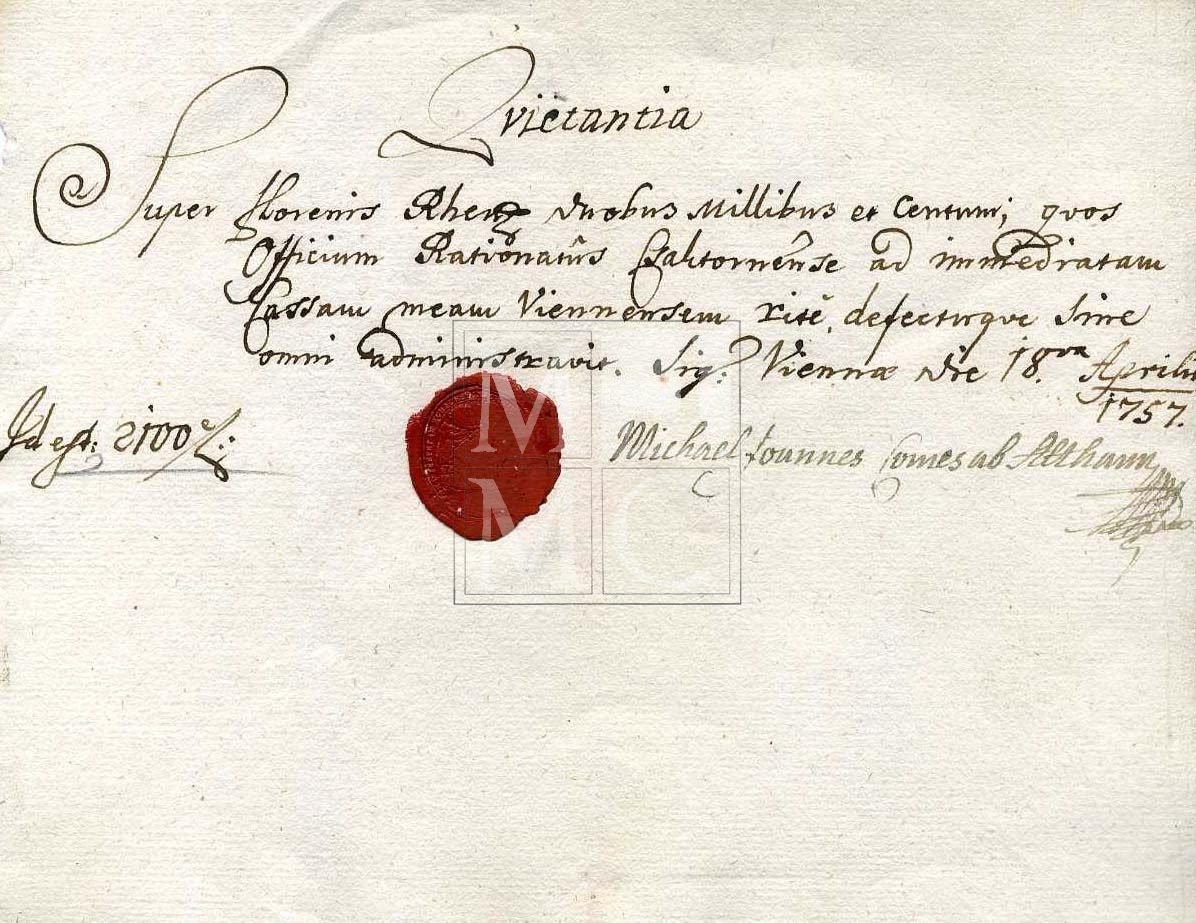 Qvietantia
Super florenis Rhen duobus Millibus et Centum; qvos
Officium Rationatûs Csaktornênse ad immediatam
Cassam meam Viennensem ritè, defectuqve sine
omni administravit. Sig: Viennæ die 18.va Aprilis
1757.
Id est: 2100 f:
Michael Joannes Comes ab Althann
M M
M C